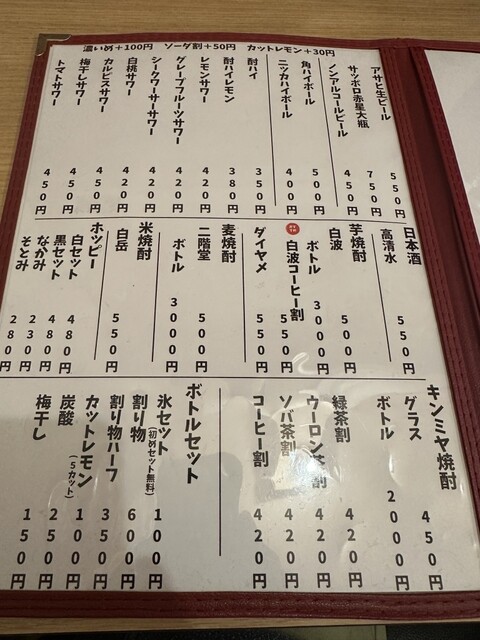 濃いめ＋100円　ソーダ割＋50円　カットレモン＋30円
アサヒ生ビール 550円
サッポロ赤星大瓶 750円
ノンアルコールビール 450円
角ハイボール 500円
ニッカハイボール 400円
酎ハイ 350円
酎ハイレモン 380円
レモンサワー 420円
グレープフルーツサワー 420円
シークワーサーサワー 420円
白桃サワー 420円
カルピスサワー 450円
梅干しサワー 450円
トマトサワー 450円
日本酒
高清水 550円
芋焼酎
白波 500円
ボトル 3000円
白波コーヒー割 550円
ダイヤメ 550円
麦焼酎
二階堂 500円
ボトル 3000円
米焼酎
白岳 550円
ホッピー
白セット 480円
黒セット 480円
なかみ 230円
そとみ 280円
キンミヤ焼酎
グラス 450円
ボトル 2000円
緑茶割 420円
ウーロン茶割 420円
ソバ茶割 420円
コーヒー割 420円
ボトルセット
氷セット(初めセット無料) 100円
割り物 600円
割り物ハーフ 350円
カットレモン(5カット) 100円
炭酸 250円
梅干し 150円